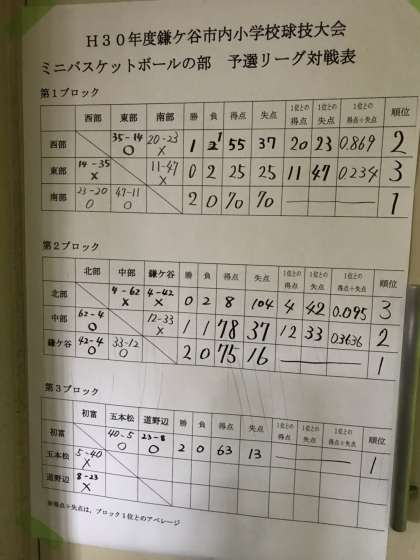 H30年度鎌ケ谷市内小学校球技大会
ミニバスケットボールの部 予選リーグ対戦表
第1ブロック
西部 東部 南部 勝 負 得点 失点 1位との得点 1位との失点 1位との得点÷失点 順位
西部 35-14 ○ 20-23 × 1 1 55 37 20 23 0.869 2
東部 14-35 × 11-47 × 0 2 25 25 11 47 0.234 3
南部 23-20 ○ 47-11 ○ 2 0 70 70 1
第2ブロック
北部 中部 鎌ケ谷 勝 負 得点 失点 1位との得点 1位との失点 1位との得点÷失点 順位
北部 4-62 × 4-42 × 0 2 8 104 4 42 0.095 3
中部 62-4 ○ 12-33 × 1 1 78 37 12 33 0.3636 2
鎌ケ谷 42-4 ○ 33-12 ○ 2 0 75 16 1
第3ブロック
初富 五本松 道野辺 勝 負 得点 失点 1位との得点 1位との失点 1位との得点÷失点 順位
初富 40-5 ○ 23-8 ○ 2 0 63 13 1
五本松 5-40 ×
道野辺 8-23 ×
※得点÷失点は、ブロック1位とのアベレージ